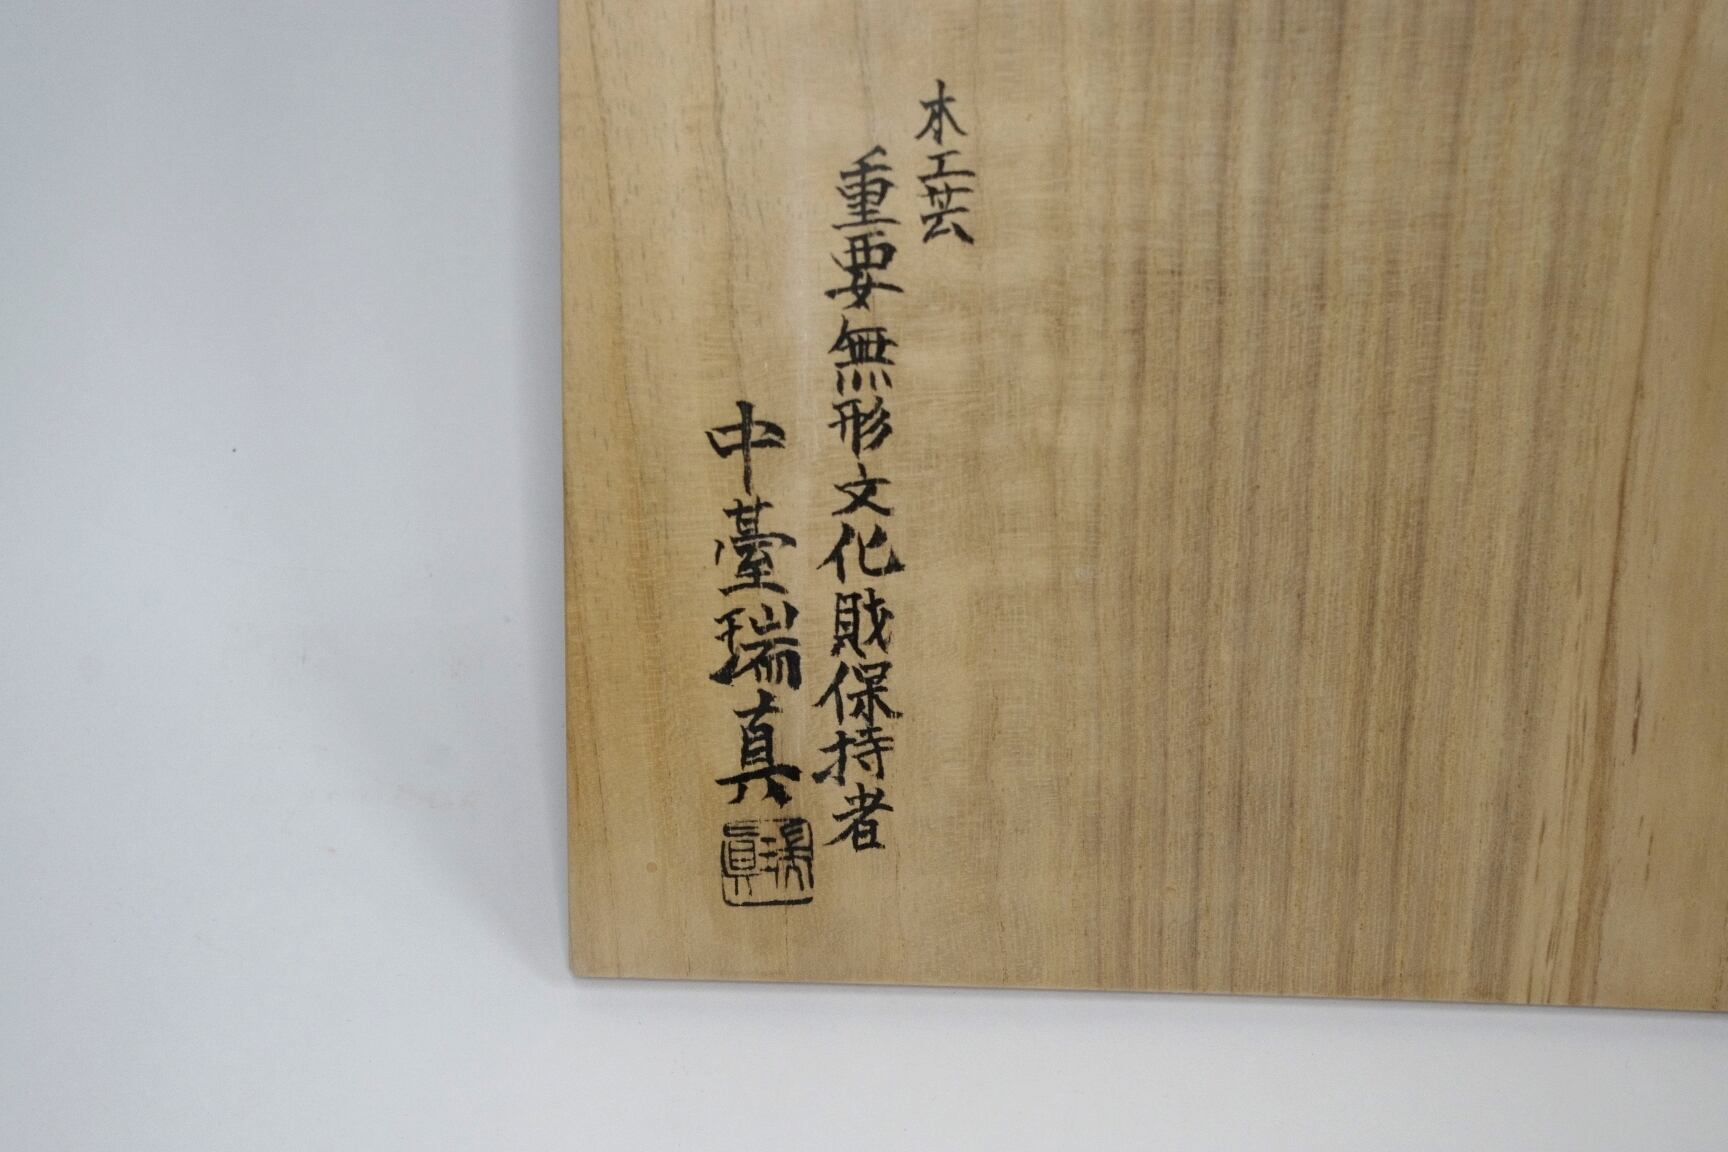 木工芸
重要無形文化財保持者
中臺瑞真
瑞真